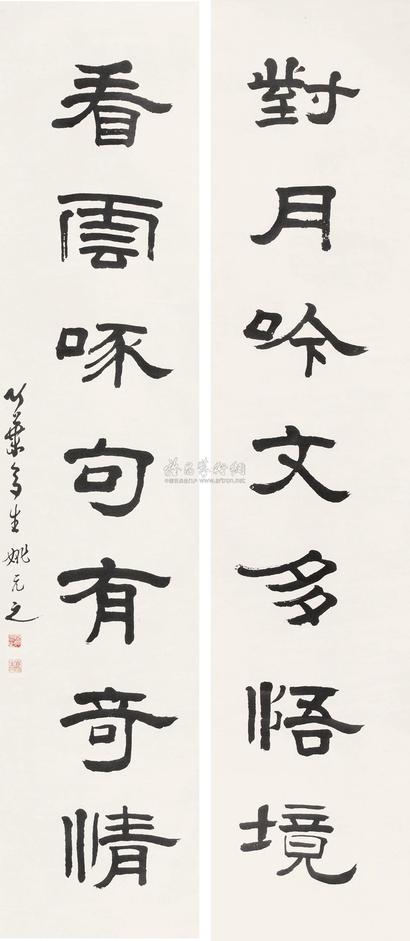 對月吟文多悟境
看雲啄句有奇情
竹葉亭生姚元之
www.artron.net